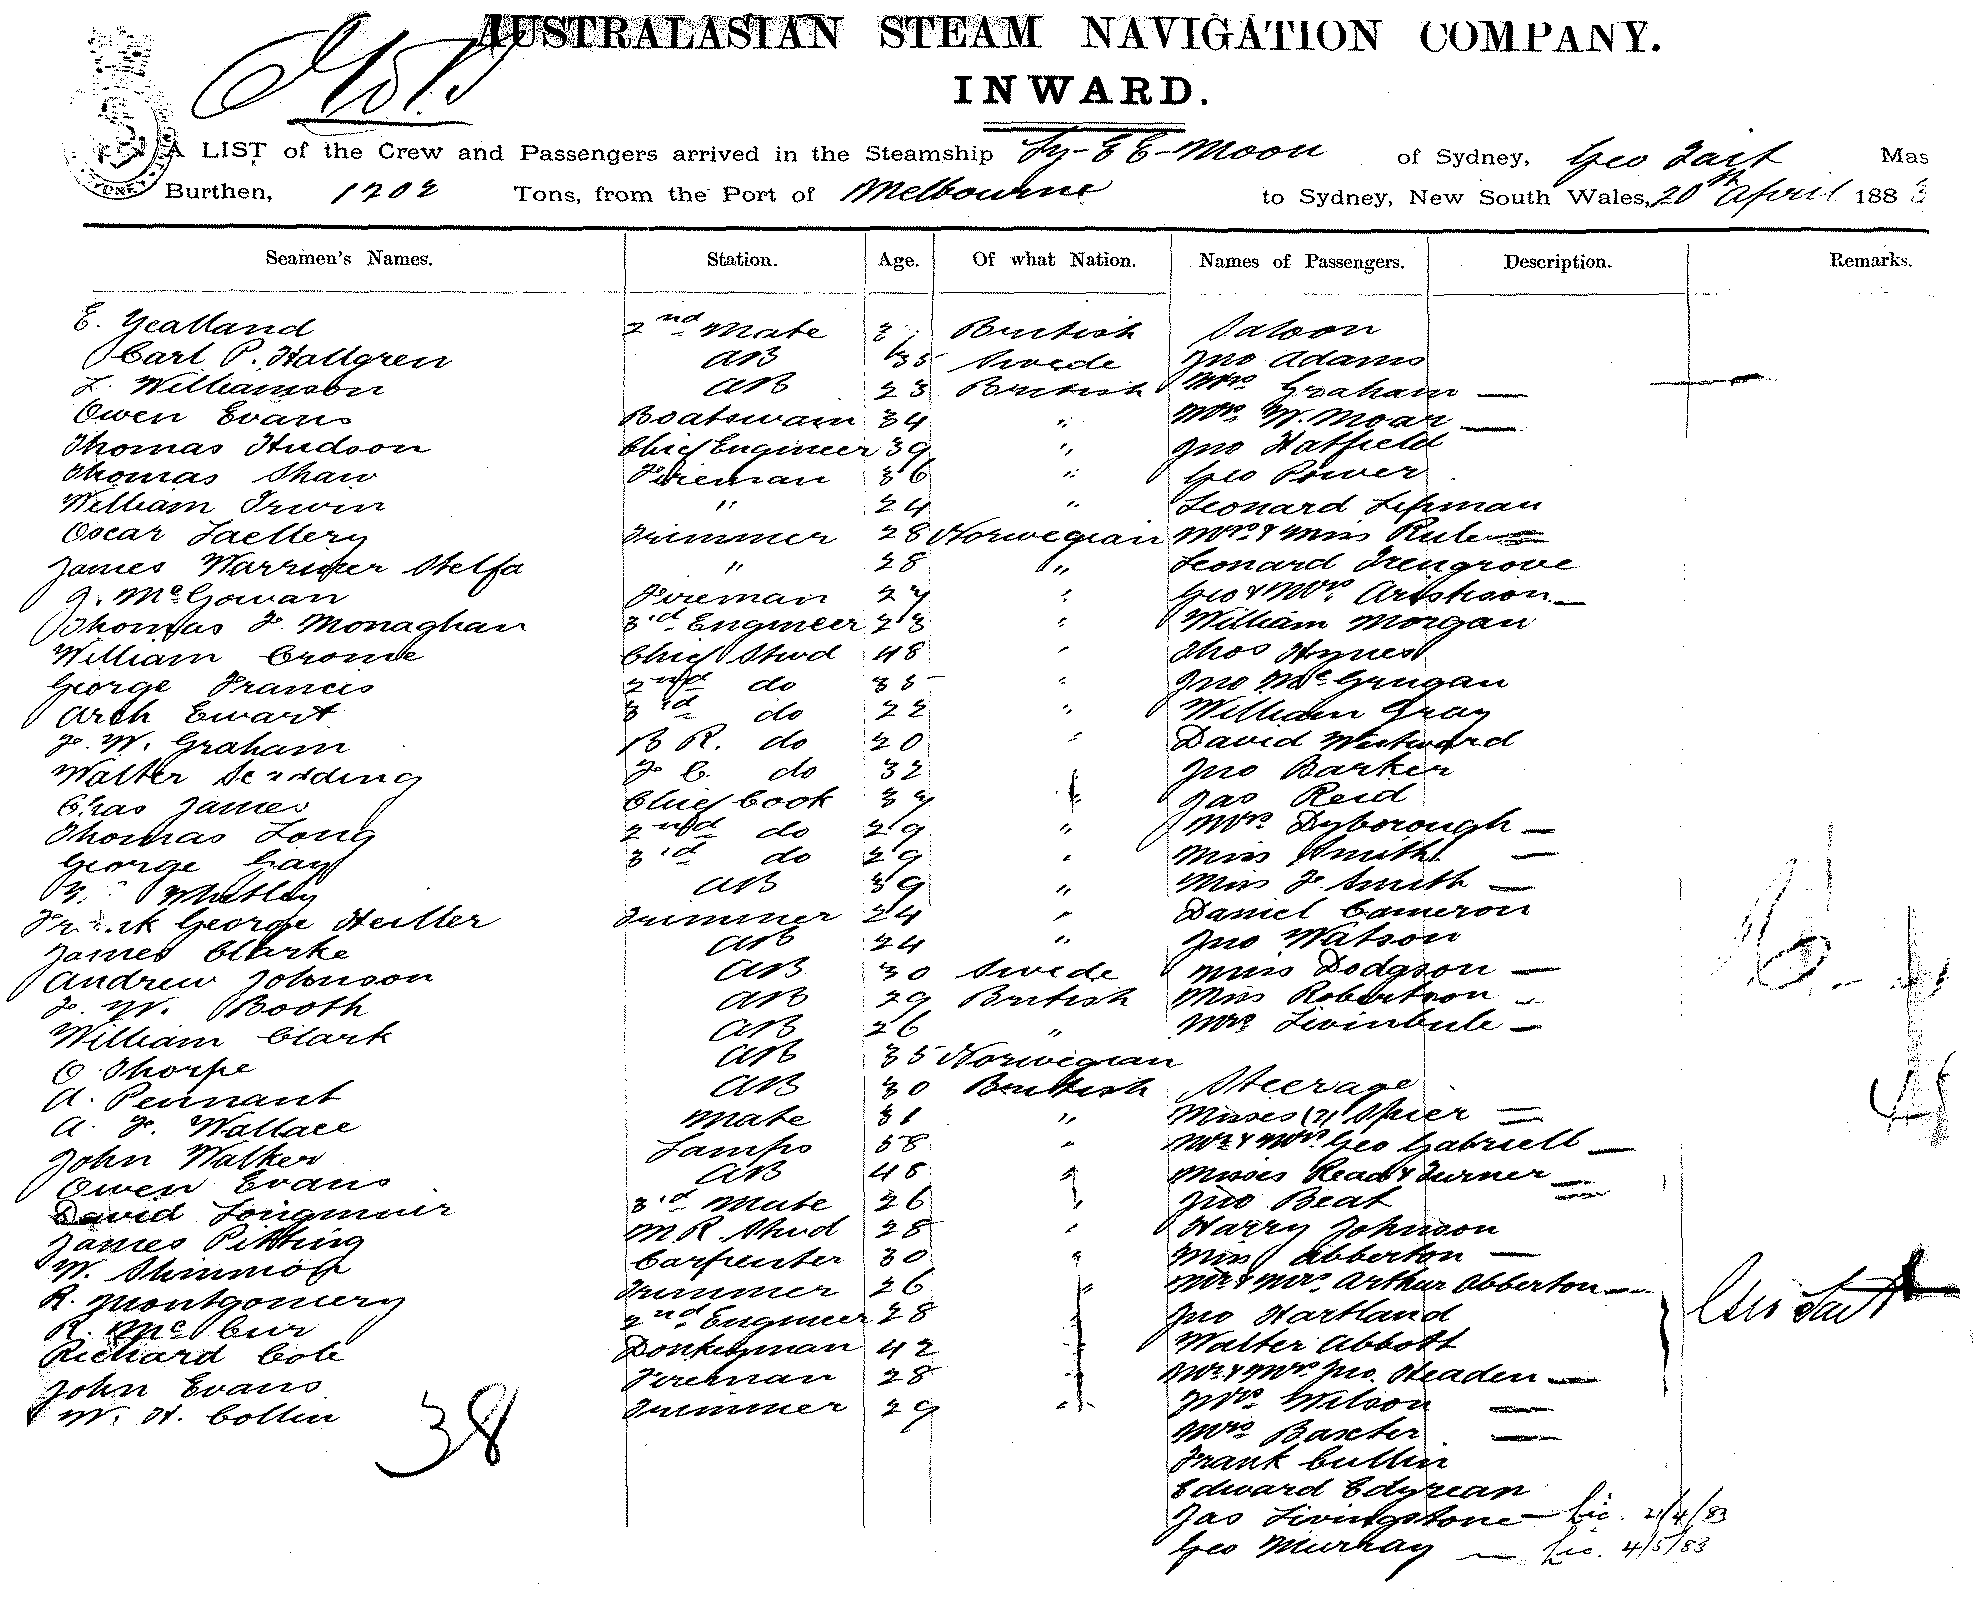 AUSTRALASIAN STEAM NAVIGATION COMPANY.
INWARD.
A LIST of the Crew and Passengers arrived in the Steamship Ly-EE-Moon of Sydney, Geo Tait Mas
Burthen, 1202 Tons, from the Port of Melbourne to Sydney, New South Wales, 20th April 1883
Seamen's Names. Station. Age. Of what Nation. Names of Passengers. Description. Remarks.
E. Yealland 2nd Mate British Saloon
Carl P. Hallgren AB 35 Swede Jno Adams
L. Williamson AB 23 British Mrs Graham —
Owen Evans Boatswain 34 " Mrs W. Moar —
Thomas Hudson Chief Engineer 39 " Jno Hatfield
Thomas Shaw Fireman 36 " Geo Power
William Irwin " 24 " Leonard Lipman
Oscar Laellery Trimmer 28 Norwegian Mrs & Miss Rule
James Warriner Stelfa " 28 " Leonard Trengrove
J. McGowan Fireman 27 " Geo & Mrs —
Thomas F. Monaghan 3rd Engineer 23 " William Morgan
William Crome Chief Stwd 48 " Thos Hynes
George Francis 2nd do 35 " Jno McGrugan
Arch Ewart 3rd do 22 " William Gray
F. W. Graham B R. do 20 " David Westward
Walter Scudding F C. do 32 Jno Barker
Chas James Chief Cook 37 " Jas Reid
Thomas Long 2nd do 29 " Mrs Dyborough —
George Gay 3rd do 29 " Miss Smith —
Whitley AB 39 " Miss F Smith —
Frank George Heitler Trimmer 24 " Daniel Cameron
James Clarke AB 24 " Jno Watson
Andrew Johnson AB 30 Swede Miss Dodgson —
F. W. Booth AB 29 British Miss Robertson -
William Clark AB 26 " Mrs —
O Thorpe AB 35 Norwegian
A. Pennant AB 30 British Steerage
A. F. Wallace Mate 31 " Misses (2) Spier —
John Walker Lamps 58 " Mr & Mrs Geo Gabriell —
Owen Evans AB 48 " Misses Read & Turner —
David Longmuir 3rd Mate 26 Jno Beat
James Pitting M.R. Stwd 28 " Harry Johnson
W. Shimmon Carpenter 30 " Miss Abberton —
R. Montgomery Trimmer 26 " Mr & Mrs Arthur Abberton —
R. Mc Cur 2nd Engineer 28 Jno Hartland Geo Tait
Richard Cole Donkeyman 42 Walter Abbott
John Evans Fireman 28 Mr & Mrs Jno. Headen —
W. H. Collin Trimmer 29 " Mrs Wilson —
38
Mrs Baxter —
Frank Cullin
Edward Edyrean
Jas Livingstone — Lic. 21/4/83
Geo Murray — Lic. 4/5/83